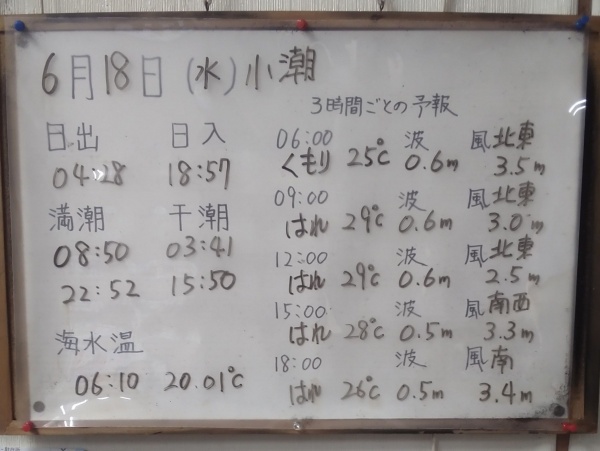 6月18日(水)小潮
日出 日入
04:28 18:57
満潮 干潮
08:50 03:41
22:52 15:50
海水温
06:10 20.01℃
3時間ごとの予報
06:00 波 風北東
くもり 25℃ 0.6m 3.5m
09:00 波 風北東
はれ 29℃ 0.6m 3.0m
12:00 波 風北東
はれ 29℃ 0.6m 2.5m
15:00 波 風南西
はれ 28℃ 0.5m 3.3m
18:00 波 風南
はれ 26℃ 0.5m 3.4m